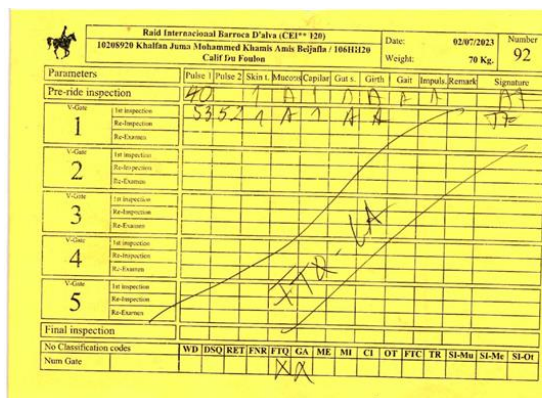 Raid Internacional Barroca D'alva (CEI** 120)
10208920 Khalfan Juma Mohammed Khamis Amis Beijafla / 106HH20
Calif Du Foulon
Date: 02/07/2023
Weight: 70 Kg.
Number
92
Parameters Pulse 1 Pulse 2 Skin t. Mucous Capilar Gut s. Girth Gait Impuls. Remark Signature
Pre-ride inspection 40 1 A 1 A A A A
V-Gate 1
1st inspection 53 52 1 A 1 A A
Re-Inspection
Re-Examen
V-Gate 2
1st inspection
Re-Inspection
Re-Examen
V-Gate 3
1st inspection
Re-Inspection
Re-Examen
V-Gate 4
1st inspection
Re-Inspection
Re-Examen
FTQ-GA
V-Gate 5
1st inspection
Re-Inspection
Re-Examen
Final inspection
No Classification codes WD DSQ RET FNR FTQ GA ME MI CI OT FTC TR SI-Mu SI-Me SI-Ot
Num Gate X